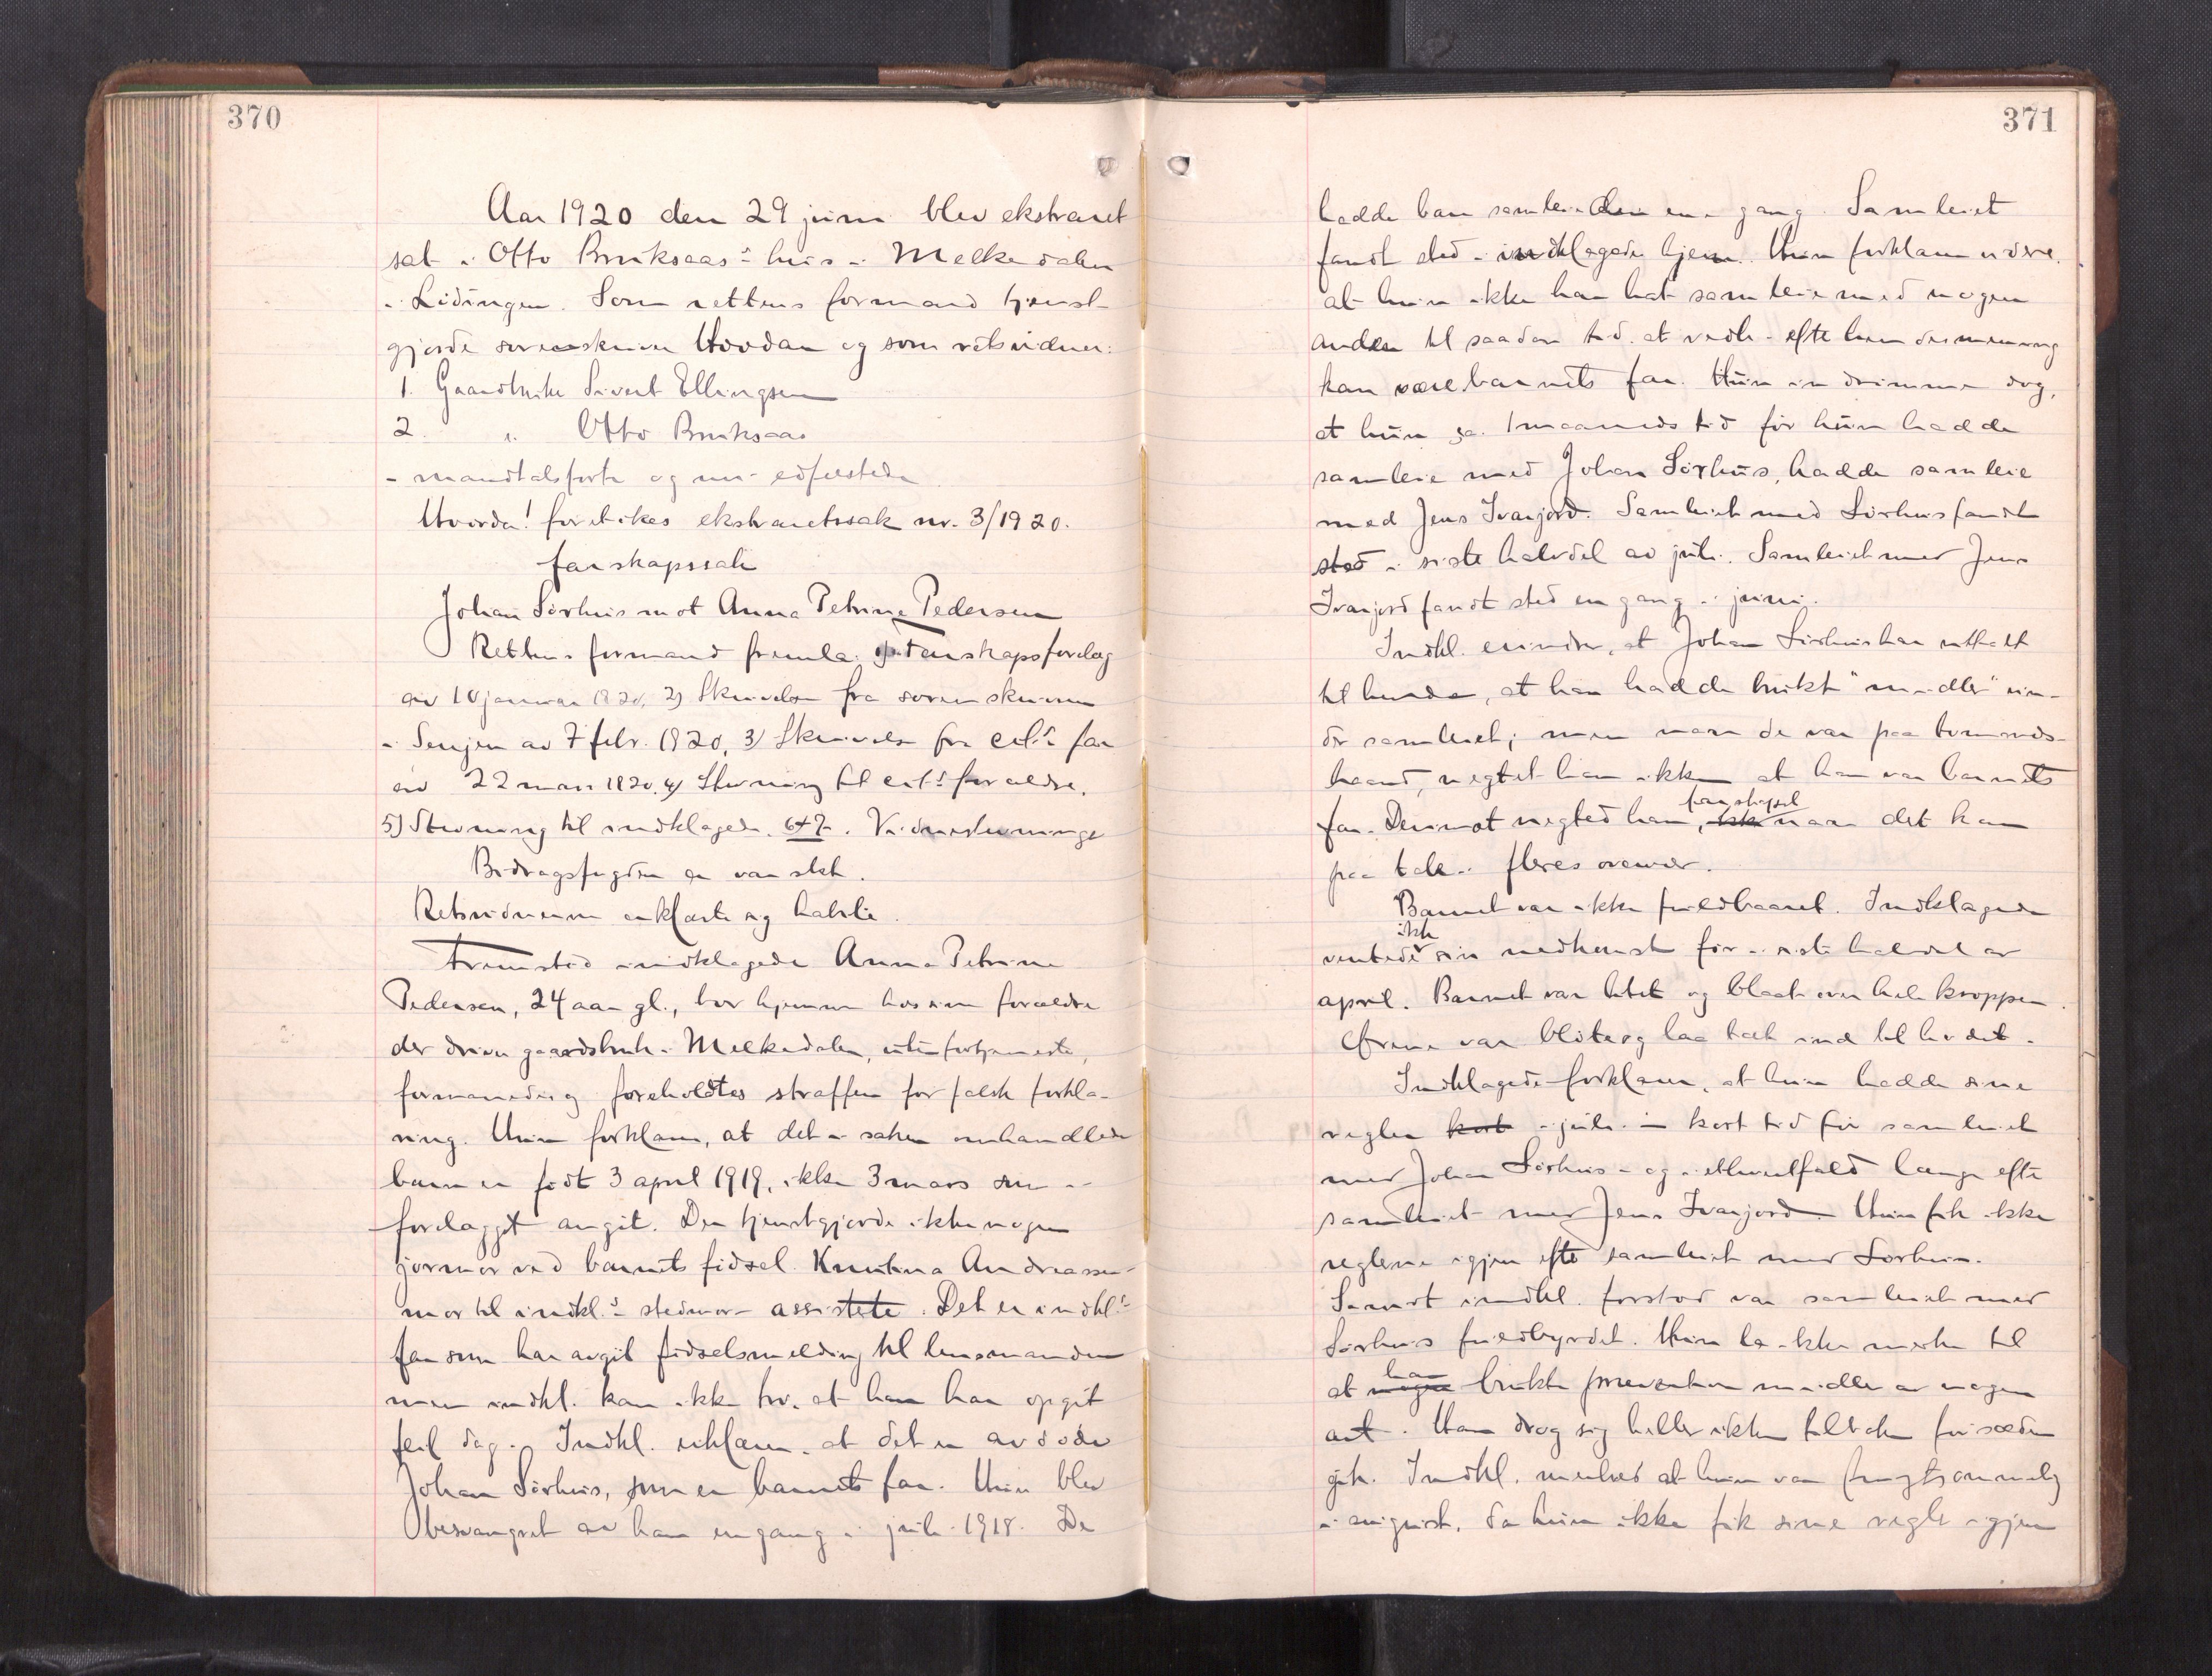 370
Aar 1920 den 29 juni blev ekstraret
sat i Otto Bruksaas's hus i Melkedalen
i Lødingen. Som rettens formand tjenst-
gjorde sorenskriver Hovdan og som retsvidner:
1. Gaardbruker Sivert Ellingsen
2. " Otto Bruksaas
- mandtalsførte og nu edfæstede
Hvorda! foretokes ekstraretssak nr. 3/1920.
farskapssak
Johan Sørhus mot Anna Petrine Pedersen
Rettens formand fremla: 1) Farskapsforelæg
av 10 januar 1920, 2) Skrivelse fra sorenskriveren
i Senjen av 7 febr. 1920, 3) Skrivelse fra cit.s far
av 22 mars 1920, 4) Stevning til cit.s forældre,
5) Stevning til indklagede. 6+7. Vidnestevninger
Bidragsfogden er varslet.
Retsvidnerne erklærte sig habile.
Fremstod indklagede Anna Petrine
Pedersen, 24 aar gl., bor hjemme hos sine forældre
der driver gaardsbruk i Melkedalen, uten fortjeneste,
formanedes og foreholdtes straffen for falsk forkla-
ring. Hun forklarer, at det i saken omhandlede
barn er født 3 april 1919, ikke 3 mars som i
forelægget angit. Der tjenstgjorde ikke nogen
jormor ved barnets fødsel. Andreassen-
mor til indkl.s stedmor - assisterte. Det er indkl.s
far som har avgit fødselsmelding til lensmanden
men indkl. kan ikke tro, at han har opgit
feil dag. Indkl. erklærer, at det er avdøde
Johan Sørhus, som er barnets far. Hun blev
besvangret av ham en gang i juli 1918. De
371
hadde bare samleie den ene gang. Samleiet
fandt sted i indklagedes hjem. Hun forklarer videre,
at hun ikke har hat samleie med nogen
anden til saadan tid, at vedk. efter hendes mening
kan være barnets far. Hun indrømmer dog,
at hun ca. 1 maaneds tid før hun hadde
samleie med Johan Sørhus, hadde samleie
med Jens Ivarjord. Samleiet med Sørhus fandt
sted i siste halvdel av juli. Samleiet med Jens
Ivarjord fandt sted en gang i juni.
Indkl. erindrer, at Johan Sørhus har uttalt
til hende, at han hadde brukt "midler" un-
der samleiet; men naar de var paa tomands-
haand, negtet han ikke at han var barnets
far. Derimot negted han farskapet, naar det kom
paa tale i fleres overvær.
Barnet var ikke fuldbaaret. Indklagede
ventede ikke sin nedkomst før i siste halvdel av
april. Barnet var litet og blaat over hele kroppen.
Ørene var bløte og laa tæt ind til hodet.
Indklagede forklarer, at hun hadde sine
regler kort i juli - kort tid før samleiet
med Johan Sørhus - og i ethvertfald længe efter
samleiet med Jens Ivarjord. Hun fik ikke
reglene igjen efter samleiet med Sørhus.
Saavidt indkl. forstod var samleiet med
Sørhus fuldbyrdet. Hun la ikke merke til
at han nogen brukte preventive midler av nogen
art. Han drog sig heller ikke tilbake før sæden
gik. Indkl. merket at hun var frugtsommelig
i august, da hun ikke fik sine regler igjen